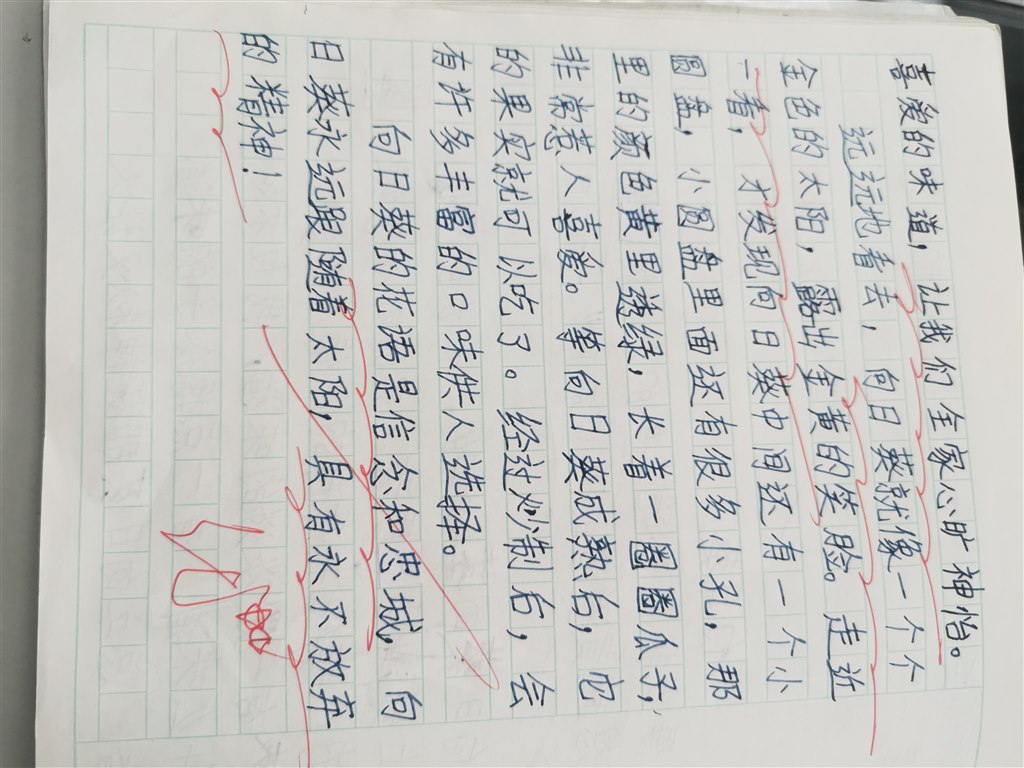 喜爱的味道，让我们全家心旷神怡。
远远地看去，向日葵就像一个个
金色的太阳，露出金黄的笑脸。走近
一看，才发现向日葵中间还有一个小
圆盘，小圆盘里面还有很多小孔，那
里的颜色黄里透绿，长着一圈圈瓜子，
非常惹人喜爱。等向日葵成熟后，它
的果实就可以吃了。经过炒制后，会
有许多丰富的口味供人选择。
向日葵的花语是信念和忠城，向
日葵永远跟随着太阳，具有永不放弃
的精神！